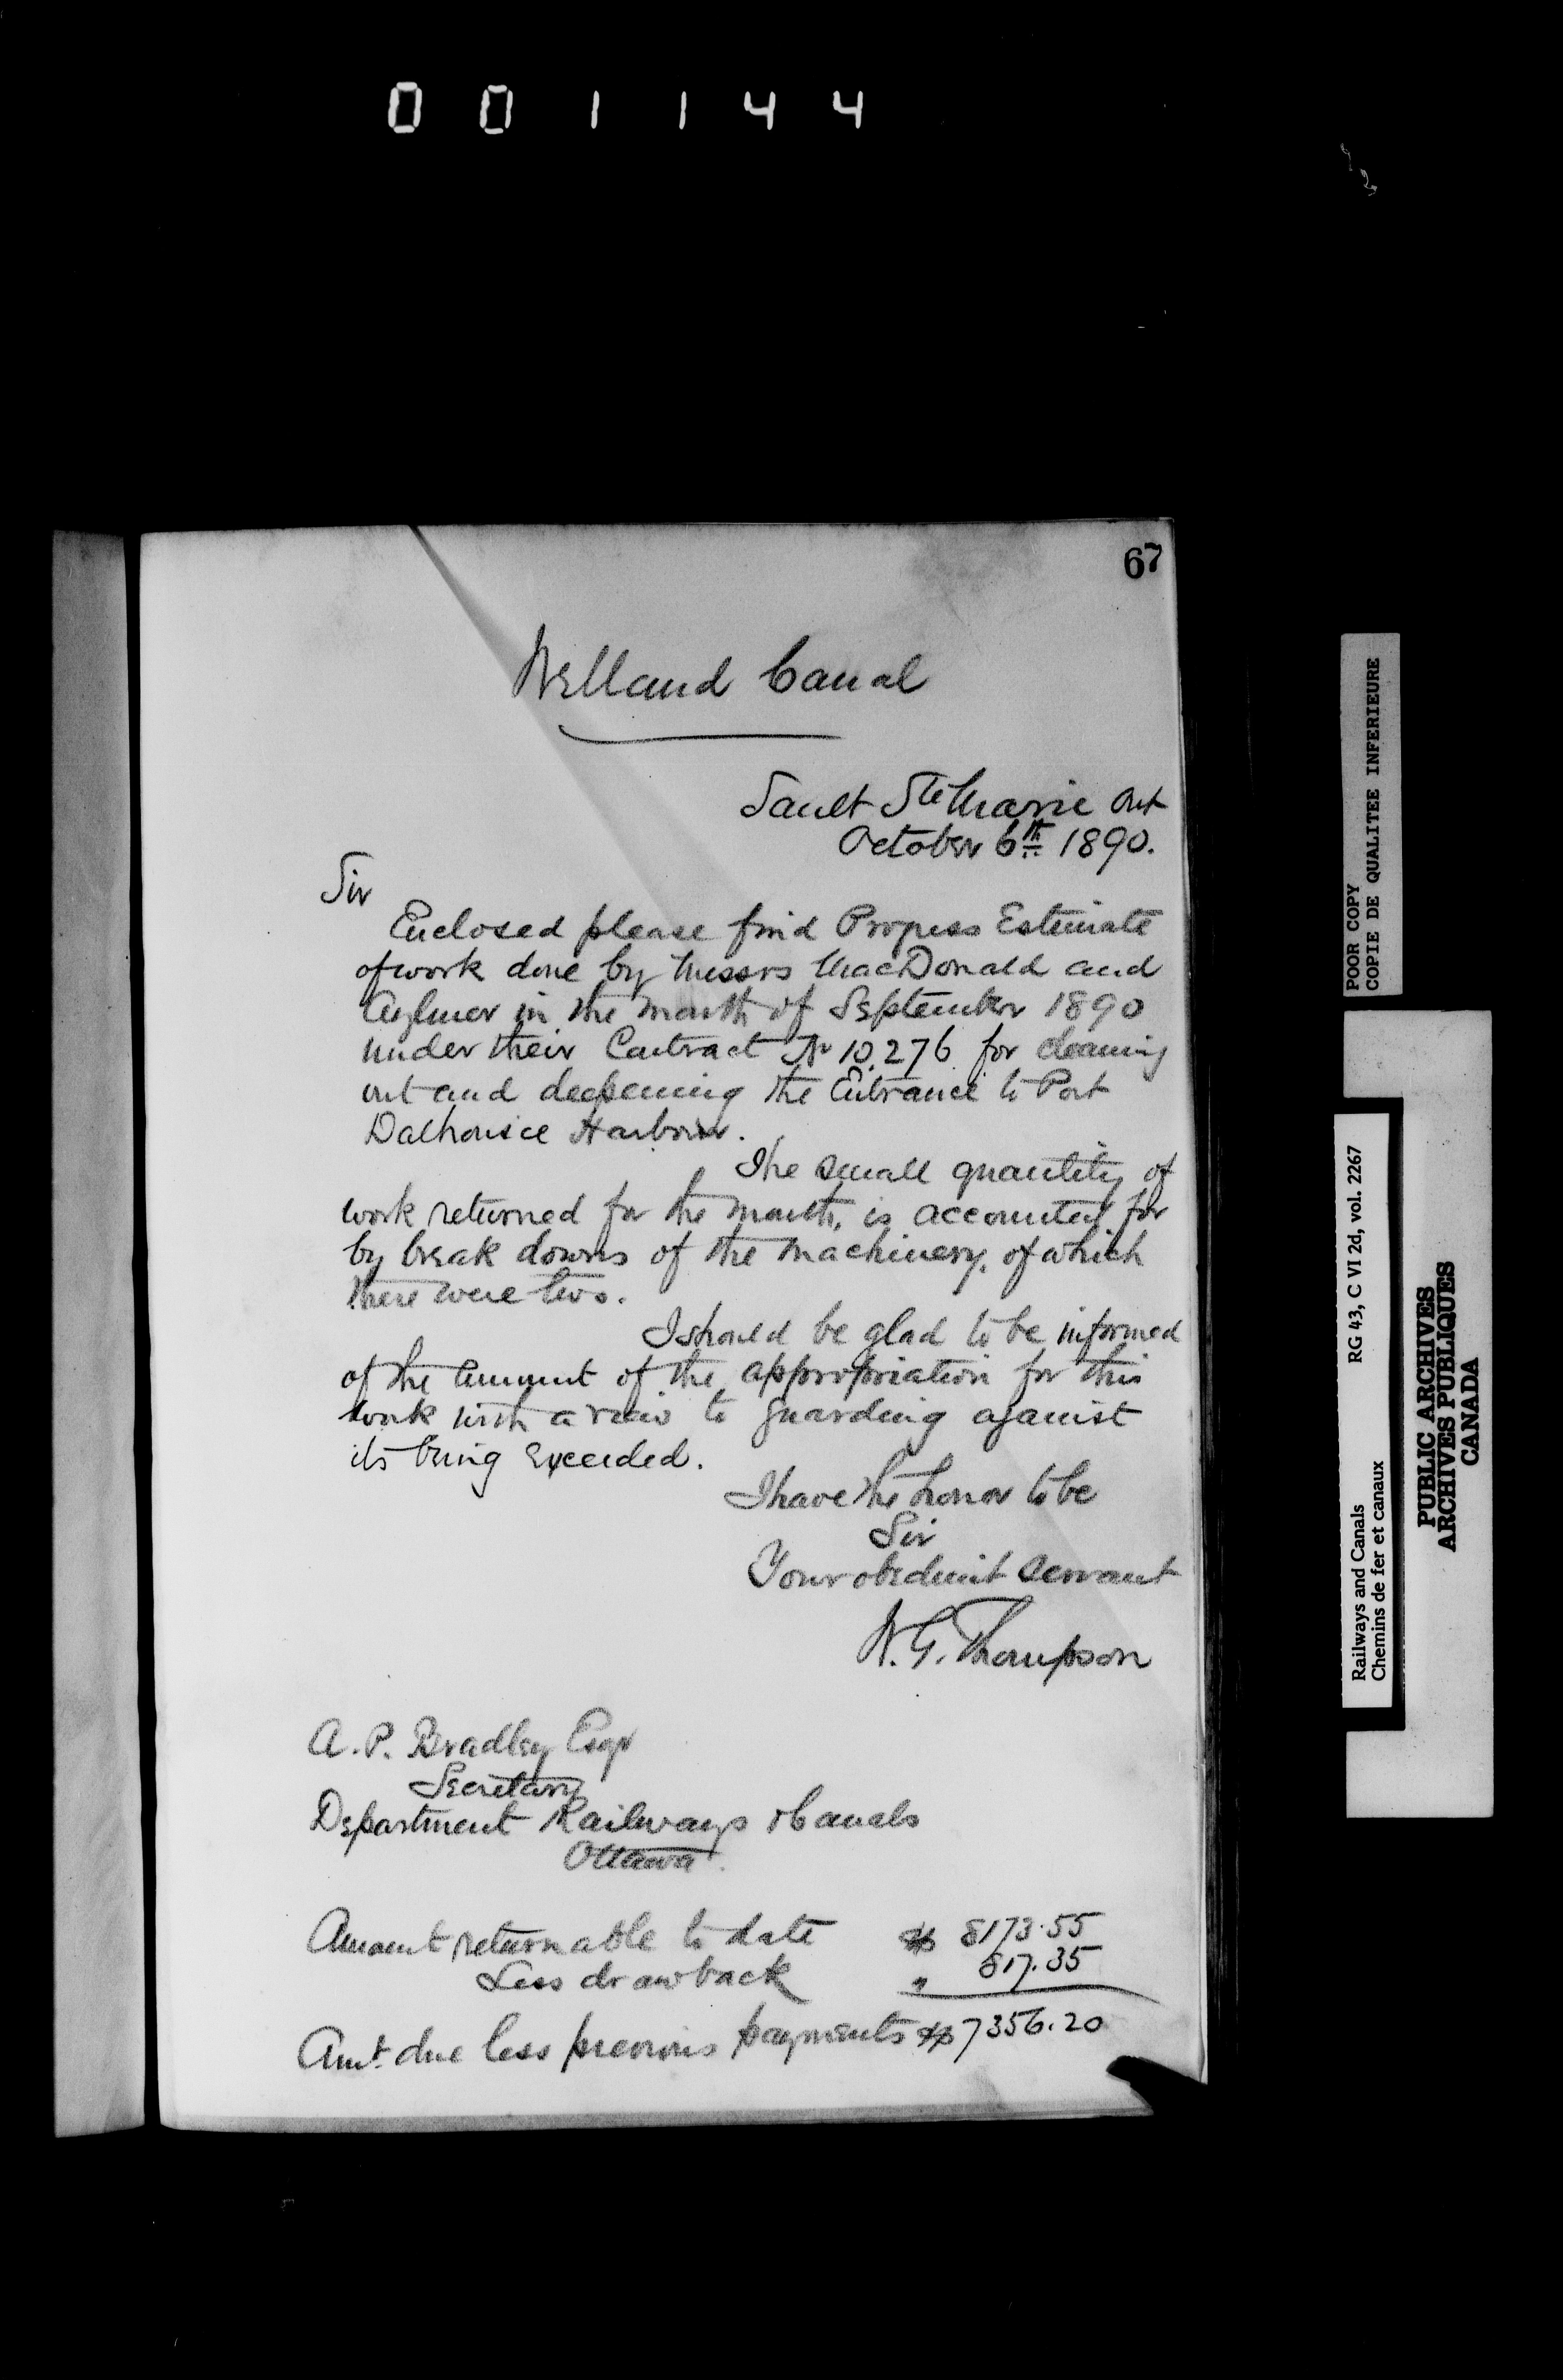 001144
67
Welland Canal
Sault Ste Marie Ont
October 6th 1890.
Sir
Enclosed please find Progress Estimate
of work done by Messrs MacDonald and
Aylmer in the month of September 1890
under their Contract No 10.276 for cleaning
out and deepening the Entrance to Port
Dalhousie Harbour.
The small quantity of
work returned for the month, is accounted for
by break downs of the machinery, of which
there were two.
I should be glad to be informed
of the amount of the appropriation for this
work with a view to guarding against
its being exceeded.
I have the honor to be
Sir
Your obedient servant
W. G. Thompson
A. P. Bradley Esqr
Secretary
Department Railways & Canals
Ottawa.
Amount returnable to date $ 8173.55
Less drawback " 817.35
Amt. due less previous payments $7356.20
POOR COPY
COPIE DE QUALITEE INFERIEURE
RG 43, C VI 2d, vol. 2267
Railways and Canals
Chemins de fer et canaux
PUBLIC ARCHIVES
ARCHIVES PUBLIQUES
CANADA